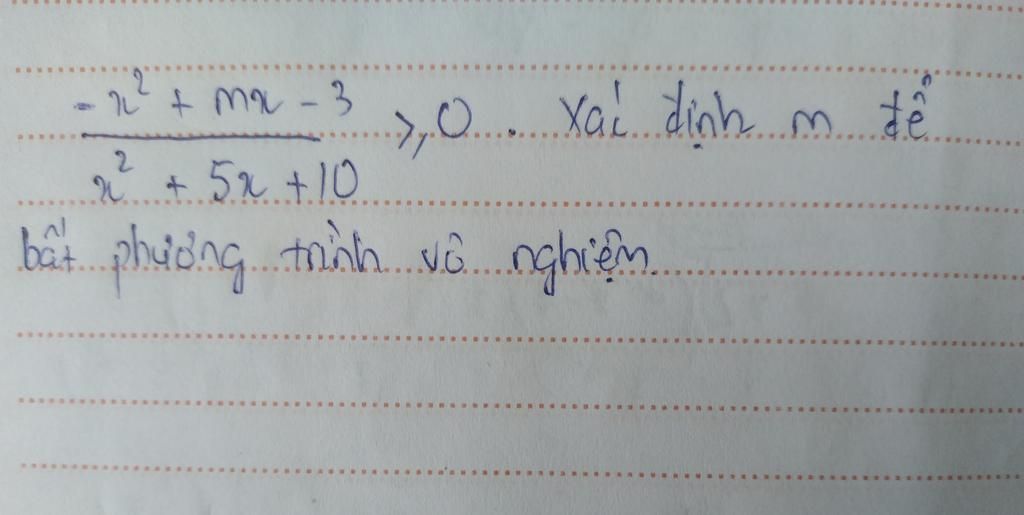 (-x² + mx - 3)/(x² + 5x + 10) ≥ 0. Xác định m để
bất phương trình vô nghiệm.